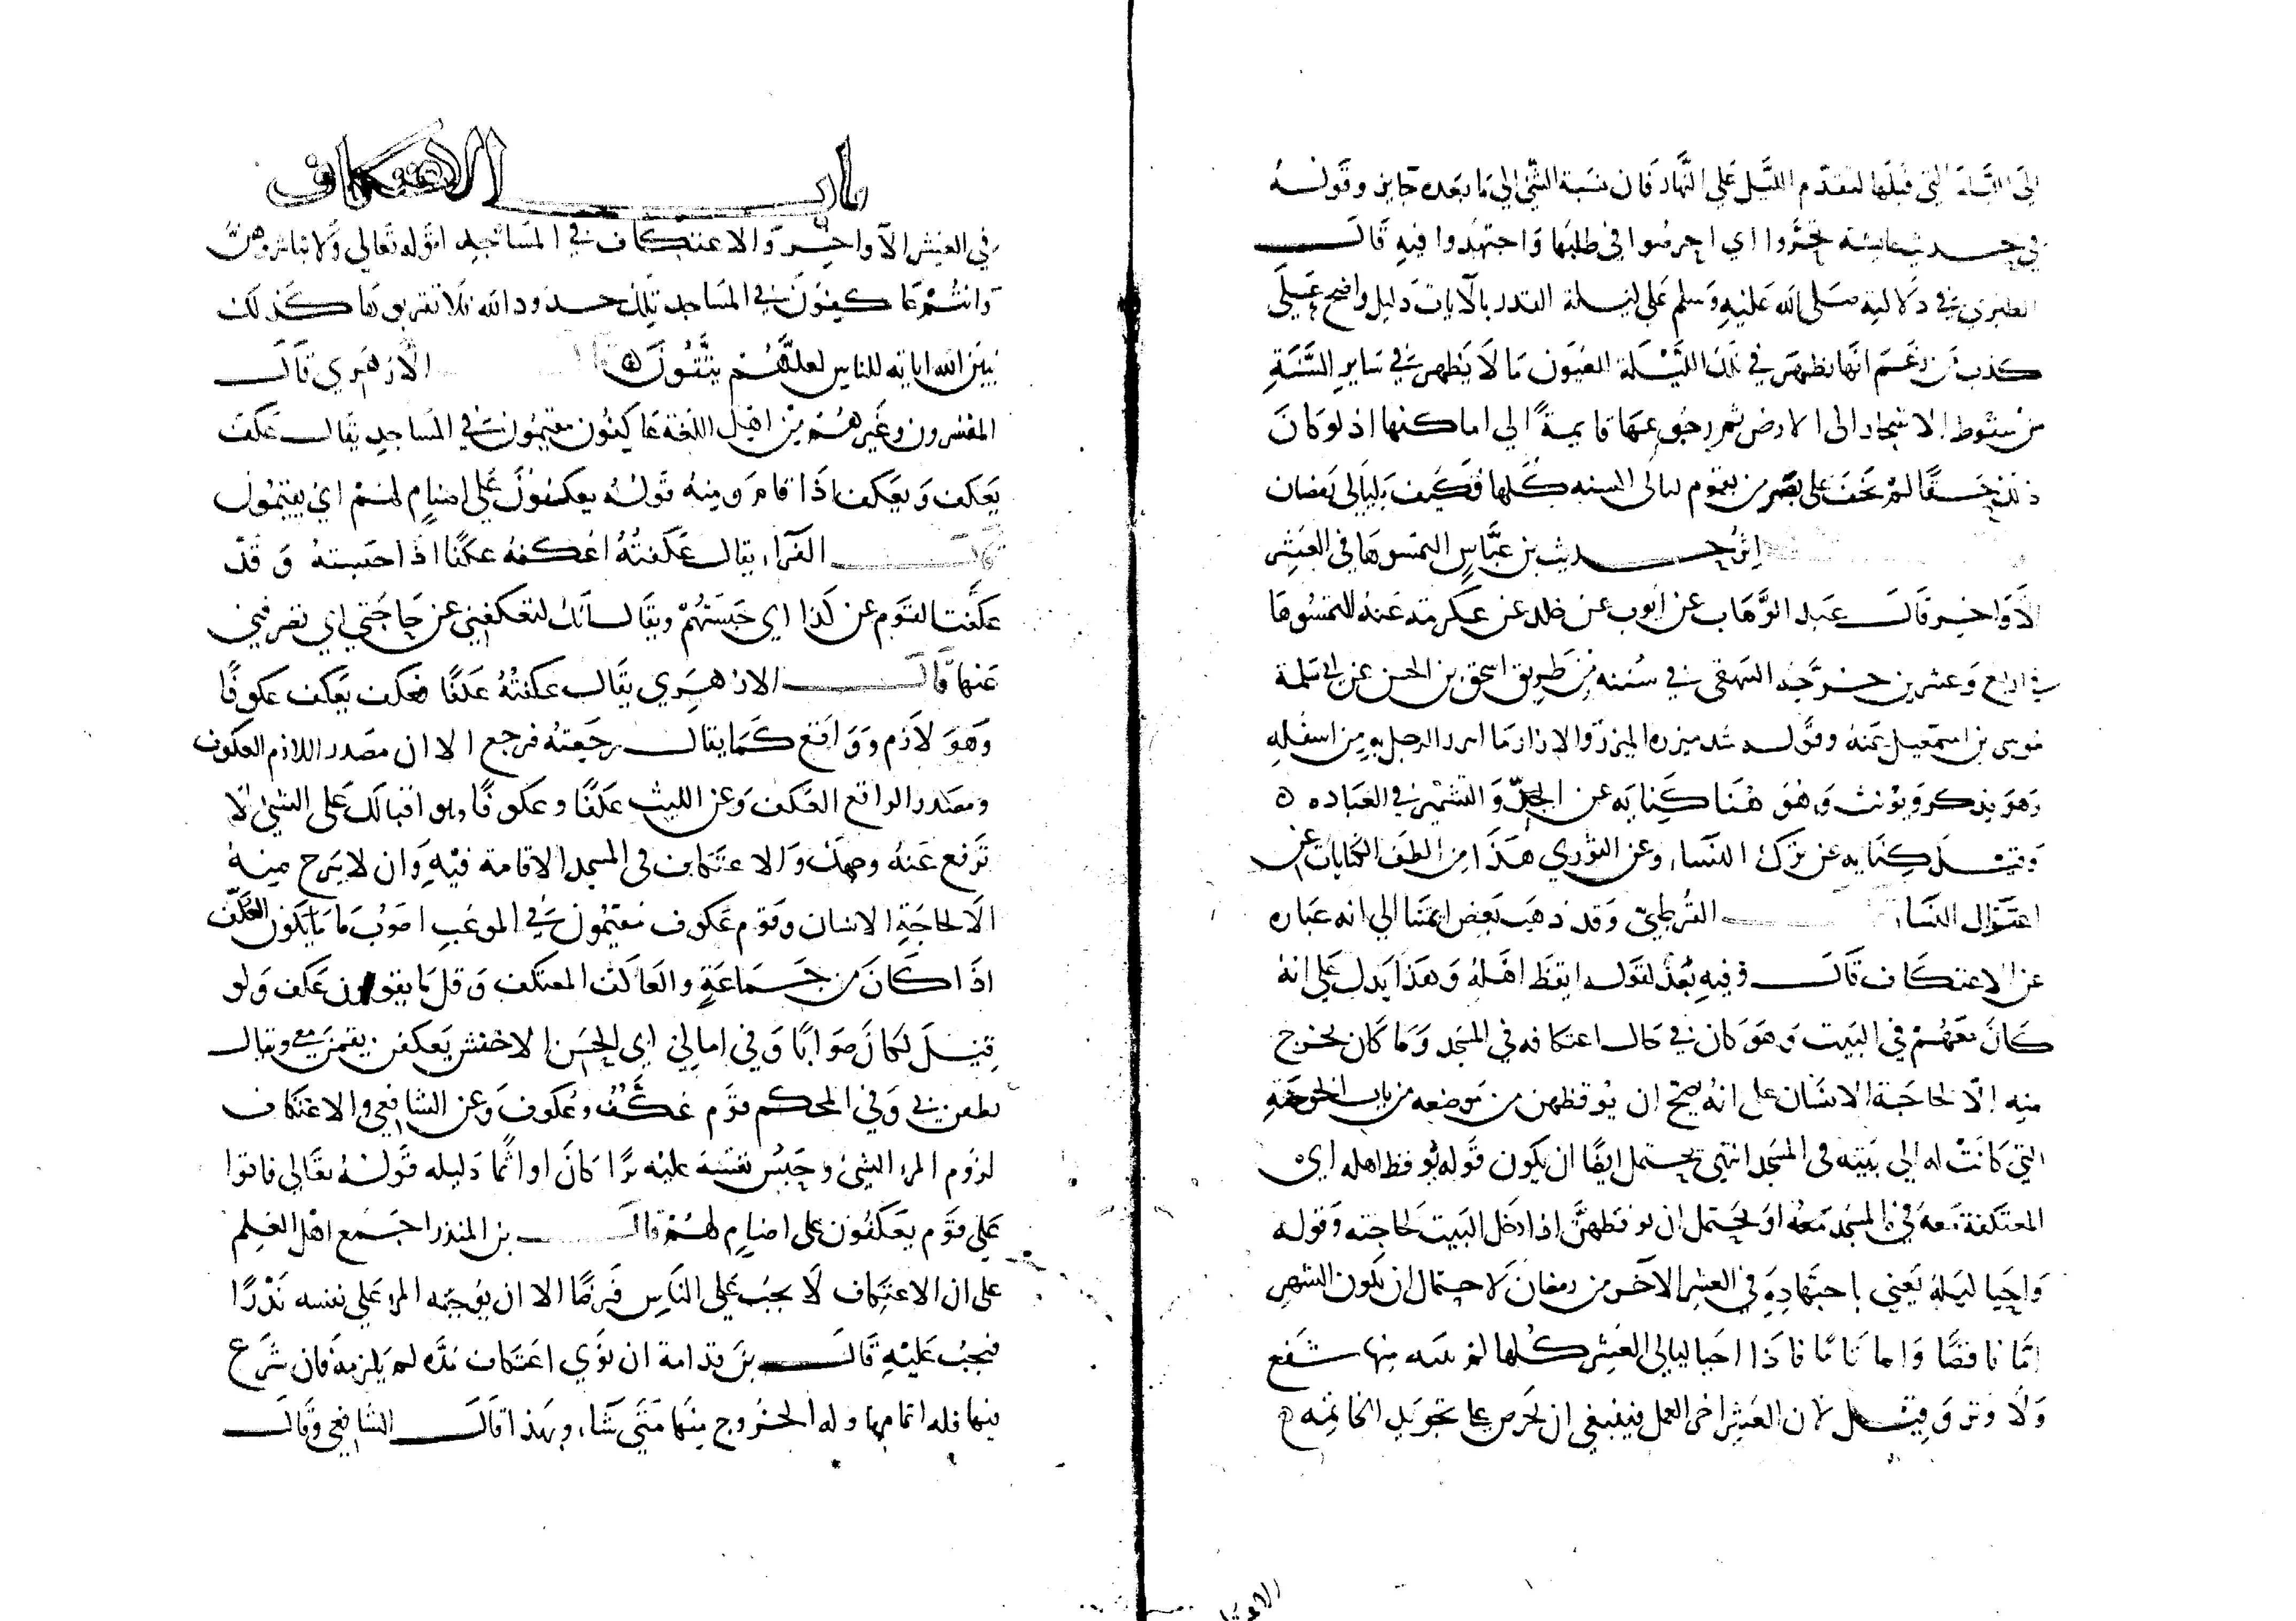 الى الليلة التي قبلها لتقدم الليل على النهار فان نسبة الشي الي ما بعده جايز وقوله
في حديث عايشة تحروا اي احرصوا في طلبها واجتهدوا فيه قال
الطبري في دلالته صلى الله عليه وسلم علي ليلة القدر بالآيات دليل واضح علي
كذب من زعم انها تظهر في تلك الليلة للعيون ما لا يظهر في ساير السنة
من سقوط الاشجار الى الارض ثم رجوعها قايمة الي اماكنها اذ لو كان
ذلك حقا لم يخف على بصر من يقوم ليالى السنه كلها فكيف بليالي رمضان
اثر حديث بن عباس التمسوها في العشر
الاواخر قال عبد الوهاب عن ايوب عن خلد عن عكرمة عنه التمسوها
في اربع وعشرين خرجه البيهقي في سننه من طريق اسحق بن الحسن عن ابي سلمة
موسى بن اسمعيل عنه وقوله شد ميزره الميزر والازار ما اتزر الرجل به من اسفله
وهو يذكر ويونث وهو هنا كناية عن الجد والتشمير في العباده ه
وقيل كنايه عن ترك النساء وعن الثوري هذا من الطف الكنايات عن
اعتزال النساء القرطبي وقد ذهب بعض ايمتنا الي انه عباره
عن الاعتكاف قال وفيه بعد لقوله ايقظ اهله وهذا يدل علي انه
كان معهم في البيت وهو كان في حال اعتكافه في المسجد وما كان يخرج
منه الا لحاجة الانسان على انه يصح ان يوقظهن من موضعه من باب الخوخة
التي كانت له الي بيته في المسجد انتهي يحتمل ايضا ان يكون قوله يوقظ اهله اي
المعتكفة معه في المسجد معه او يحتمل ان يوقظهن اذا دخل البيت لحاجته وقوله
واحيا ليله يعني باجتهاده في العشر الآخر من رمضان لاحتمال ان يكون الشهر
اما ناقصا واما تاما فاذا احيا ليالي العشر كلها لم يفته منها شفع
ولا وتر وقيل لان العشر اخر العمل فينبغي ان يحرص على تجويد الخاتمه ه
الاعتكا
باب الاعتكاف
في العشر الآواخر والاعتكاف في المساجد لقوله تعالى ولا تباشروهن
وانتم عاكفون في المساجد تلك حدود الله فلا تقربوها كذلك
يبين الله اياته للناس لعلهم يتقون ه الازهري قال
المفسرون وغيرهم من اهل اللغة عاكفون مقيمون في المساجد يقال عكف
يعكف ويعكف اذا قام ومنه قوله يعكفون علي اصنام لهم اي يقيمون
الفراء يقال عكفته اعكفه عكفا اذا حبسته وقد
عكفت القوم عن كذا اي حبستهم ويقال انك لتعكفني عن حاجتي اي تصرفني
عنها قال الازهري يقال عكفته عكفا فعكف يعكف عكوفا
وهو لازم وواقع كما يقال رجعته فرجع الا ان مصدر اللازم العكوف
ومصدر الواقع العكف وعن الليث عكفا وعكوفا وهو اقبالك على الشي لا
ترفع عنه وجهك والاعتكاف في المسجد الاقامة فيه وان لا يبرح منه
الا لحاجة الانسان وقوم عكوف مقيمون في الموعب اصوب ما يكون العكف
اذا كان من جماعة والعاكف المعتكف وقل ما يقولون عكف ولو
قيل لكان صوابا وفي امالي ابي الحسن الاخفش يعكفن يقمن معي ويقال
يطفن في وفي المحكم قوم عكف وعكوف وعن الشافعي والاعتكاف
لزوم المرء الشي وحبس نفسه عليه برا كان او اثما دليله قوله تعالي فاتوا
علي قوم يعكفون على اصنام لهم قال بن المنذر اجمع اهل العلم
على ان الاعتكاف لا يجب علي الناس فرضا الا ان يوجبه المرء علي نفسه نذرا
فيجب عليه قال بن قدامة ان نوي اعتكاف مدة لم يلزمه فان شرع
فيها فله اتمامها وله الخروج منها متي شاء وبهذا قال الشافعي وقال